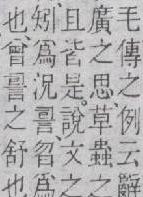 毛傳之例云辭
廣之思草蟲之
且皆是說文之
矧爲況詈曶爲
也會詈之舒也